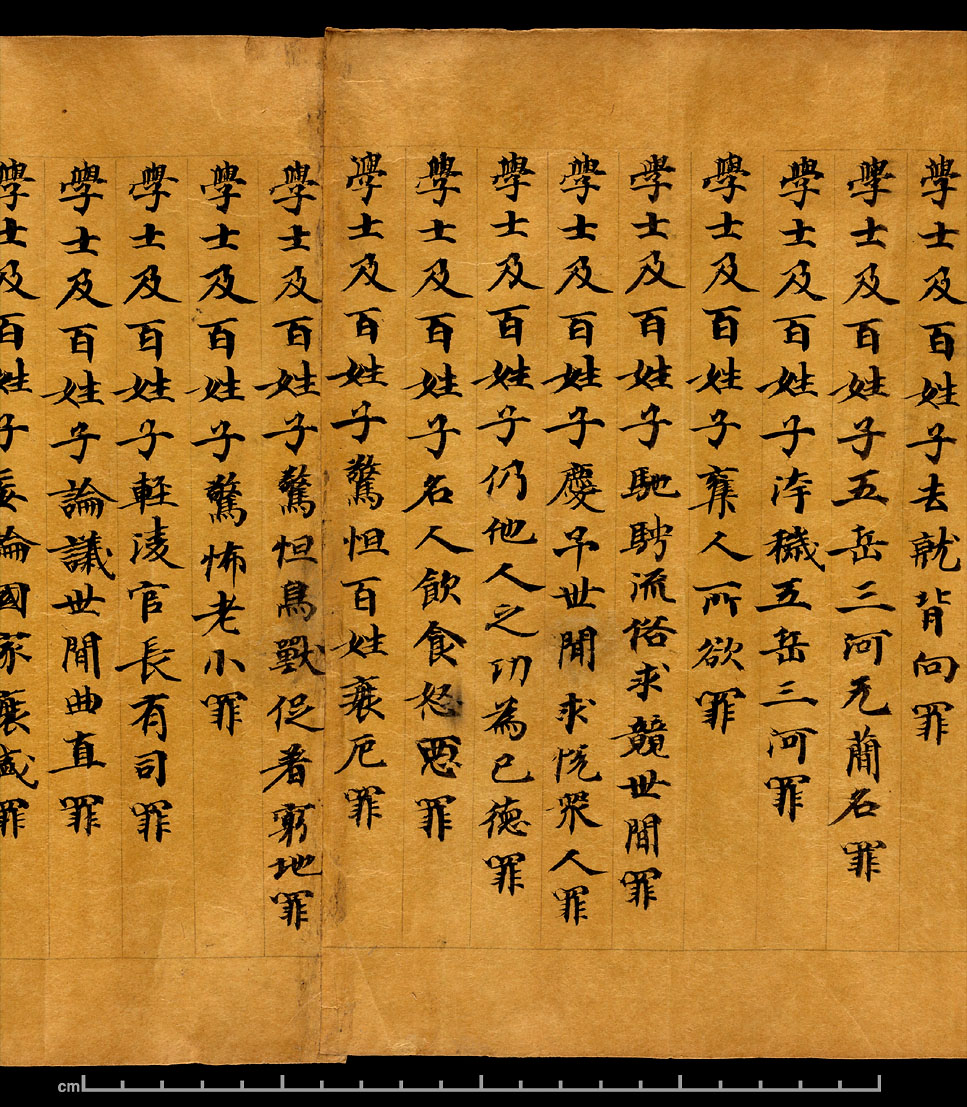 學士及百姓子去就背向罪
學士及百姓子五岳三河无蕳名罪
學士及百姓子洿穢五岳三河罪
學士及百姓子棄人所欲罪
學士及百姓子馳騁流俗求競世閒罪
學士及百姓子慶弔世閒求悅衆人罪
學士及百姓子仍他人之功為己德罪
學士及百姓子名人飲食怒惡罪
學士及百姓子驚怛百姓衰厄罪
學士及百姓子驚怛鳥獸促著窮地罪
學士及百姓子驚怖老小罪
學士及百姓子輕淩官長有司罪
學士及百姓子論議世閒曲直罪
學士及百姓子妄論國家衰盛罪
cm